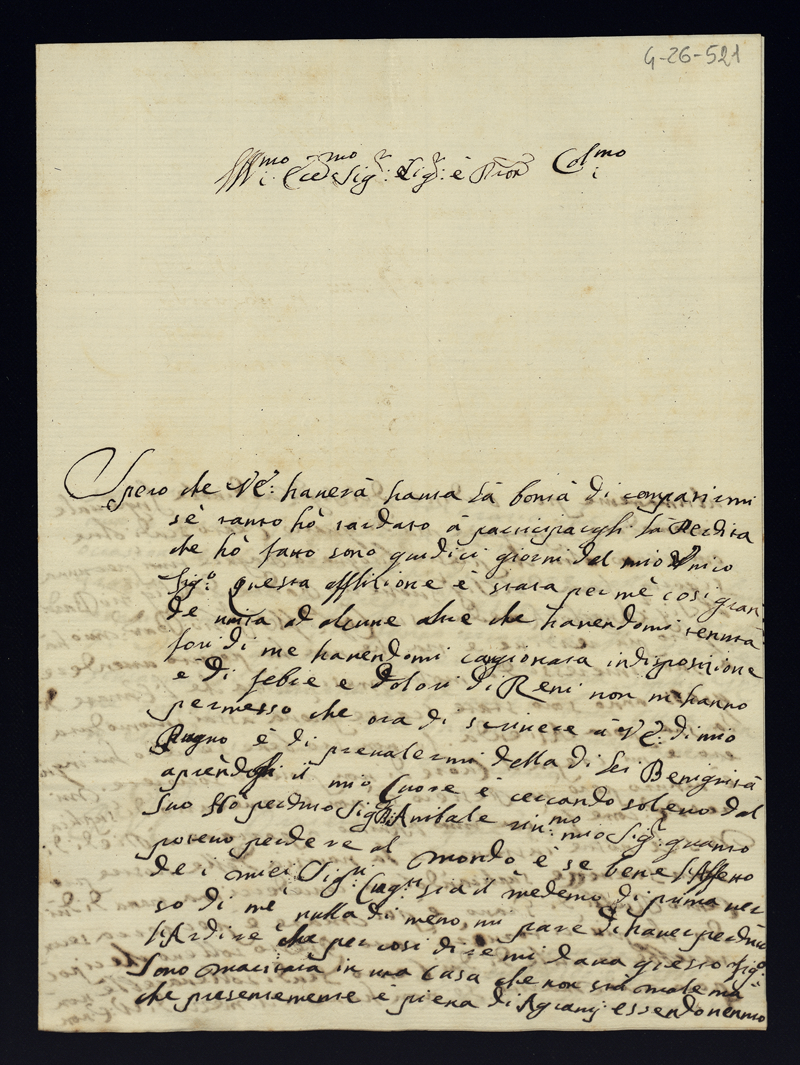 G-26-521
Ill.mo Ecc.mo Sig.r Sig.r è Pron Col.mo
Spero che V.E: hauerà hauta la bontà di compatirmi
sè tanto hò tardato à participargli la Perdita
che hò fatto sono quidici giorni del mio Vnico
Fig.o questa afflitione è stata per mè cosi gran
de unita ad alcune altre che hauendomi tenuta
fori di me hauendomi cagionata indisposizione
e di febre e dolori di Reni non m hanno
permesso che ora di scriuere à V.E: di mio
Pugno è di preualermi della di Lei Benignità
aprendogli il mio Cuore è cercando solieuo dal
suo hò perduto Sig.r Anibale mio Sig.r quanto
poteuo perdere al mondo è se bene l'Affetto
de i miei Sig.ri Cug.ni sia il medemo di prima uer
so di mè nulla di meno mi pare di hauer perduto
l'Ardire che per cosi dire mi daua questo Fig.o
sono maritata in una Casa che non stà male mà
che presentemente è piena di Agrauij essendo uenuto